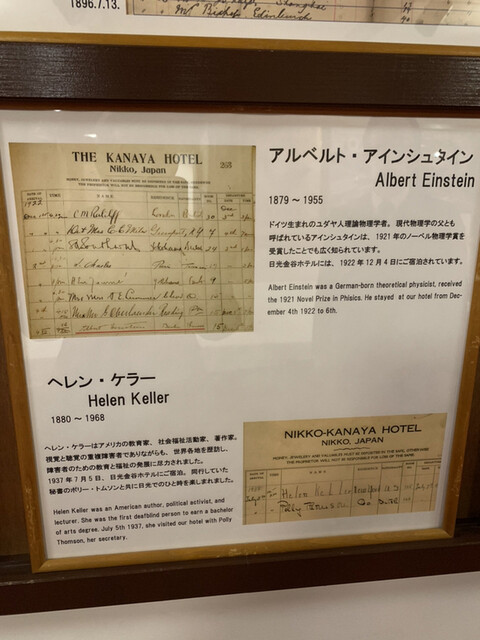 1896.7.13.
Shanghai
Mr Bishop Edinburgh
THE KANAYA HOTEL
Nikko, Japan
263
MONEY, JEWELLERY AND VALUABLES MUST BE DEPOSITED IN THE SAFE, OTHERWISE
THE PROPRIETOR WILL NOT BE RESPONSIBLE FOR LOSS OF THE SAME.
DATE OF ARRIVAL TIME NAME RESIDENCE
1922
アルベルト・アインシュタイン
Albert Einstein
1879 ~ 1955
ドイツ生まれのユダヤ人理論物理学者。 現代物理学の父とも
呼ばれているアインシュタインは、 1921 年のノーベル物理学賞を
受賞したことでも広く知られています。
日光金谷ホテルには、 1922 年 12 月 4 日にご宿泊されています。
Albert Einstein was a German-born theoretical physicist, received
the 1921 Novel Prize in Phisics. He stayed at our hotel from Dec-
ember 4th 1922 to 6th.
ヘレン・ケラー
Helen Keller
1880 ~ 1968
ヘレン・ケラーはアメリカの教育家、 社会福祉活動家、 著作家。
視覚と聴覚の重複障害者でありながらも、 世界各地を歴訪し、
障害者のための教育と福祉の発展に尽力されました。
1937 年 7 月 5 日、 日光金谷ホテルにご宿泊。 同行していた
秘書のポリー・トムソンと共に日光でのひと時を楽しまれました。
Helen Keller was an American author, political activist, and
lecturer. She was the first deafblind person to earn a bachelor
of arts degree. July 5th 1937, she visited our hotel with Polly
Thomson, her secretary.
NIKKO-KANAYA HOTEL
NIKKO, JAPAN
MONEY, JEWELLERY AND VALUABLES MUST BE DEPOSITED IN THE SAFE, OTHERWISE
THE PROPRIETOR WILL NOT BE RESPONSIBLE FOR LOSS OF THE SAME.
Helen Keller